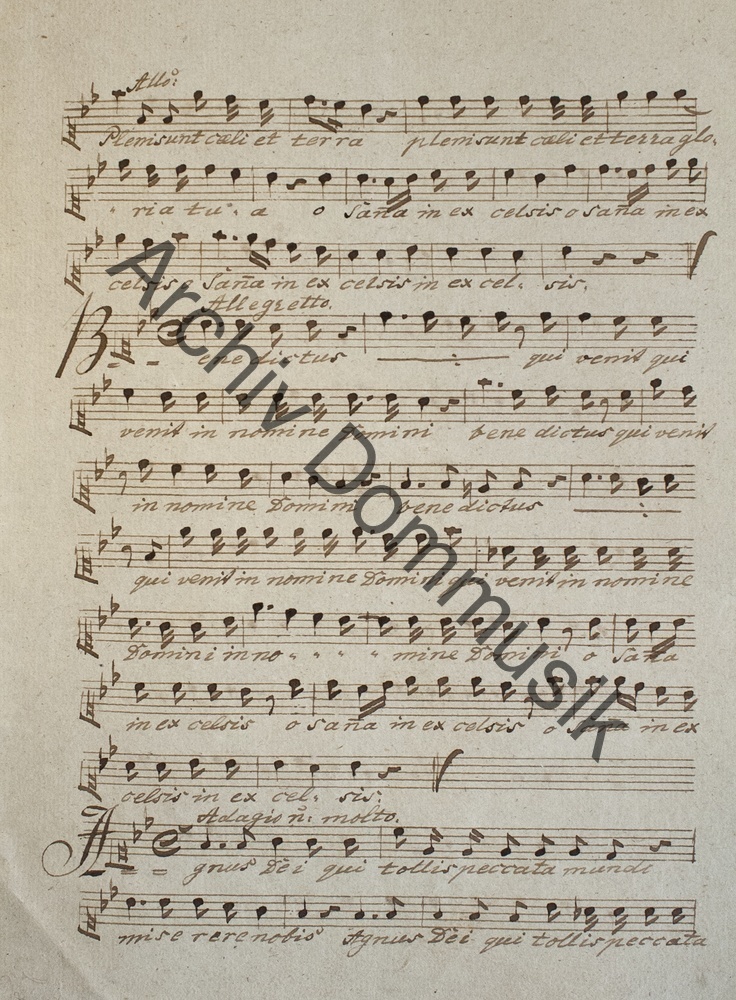 Allo:
Plenisunt cœli et terra plenisunt cœli et terra glo-
" ria tu " a o Sana in ex celsis o sana in ex
celsis o Sana in ex celsis in ex cel- sis.
Allegretto.
B - - enedictus qui venit qui
venit in nomine Domini bene dictus qui venit
in nomine Domini benedictus
qui venit in nomine Domini qui venit in nomine
Domini in no " " " " mine Domini o Sana
in ex celsis o sana in ex celsis o Sana in ex
celsis in ex cel- sis:
Adagio n: molto.
A - - gnus Dei qui tollis peccata mundi
mise rere nobis Agnus Dei qui tollis peccata
Archiv Dommusik